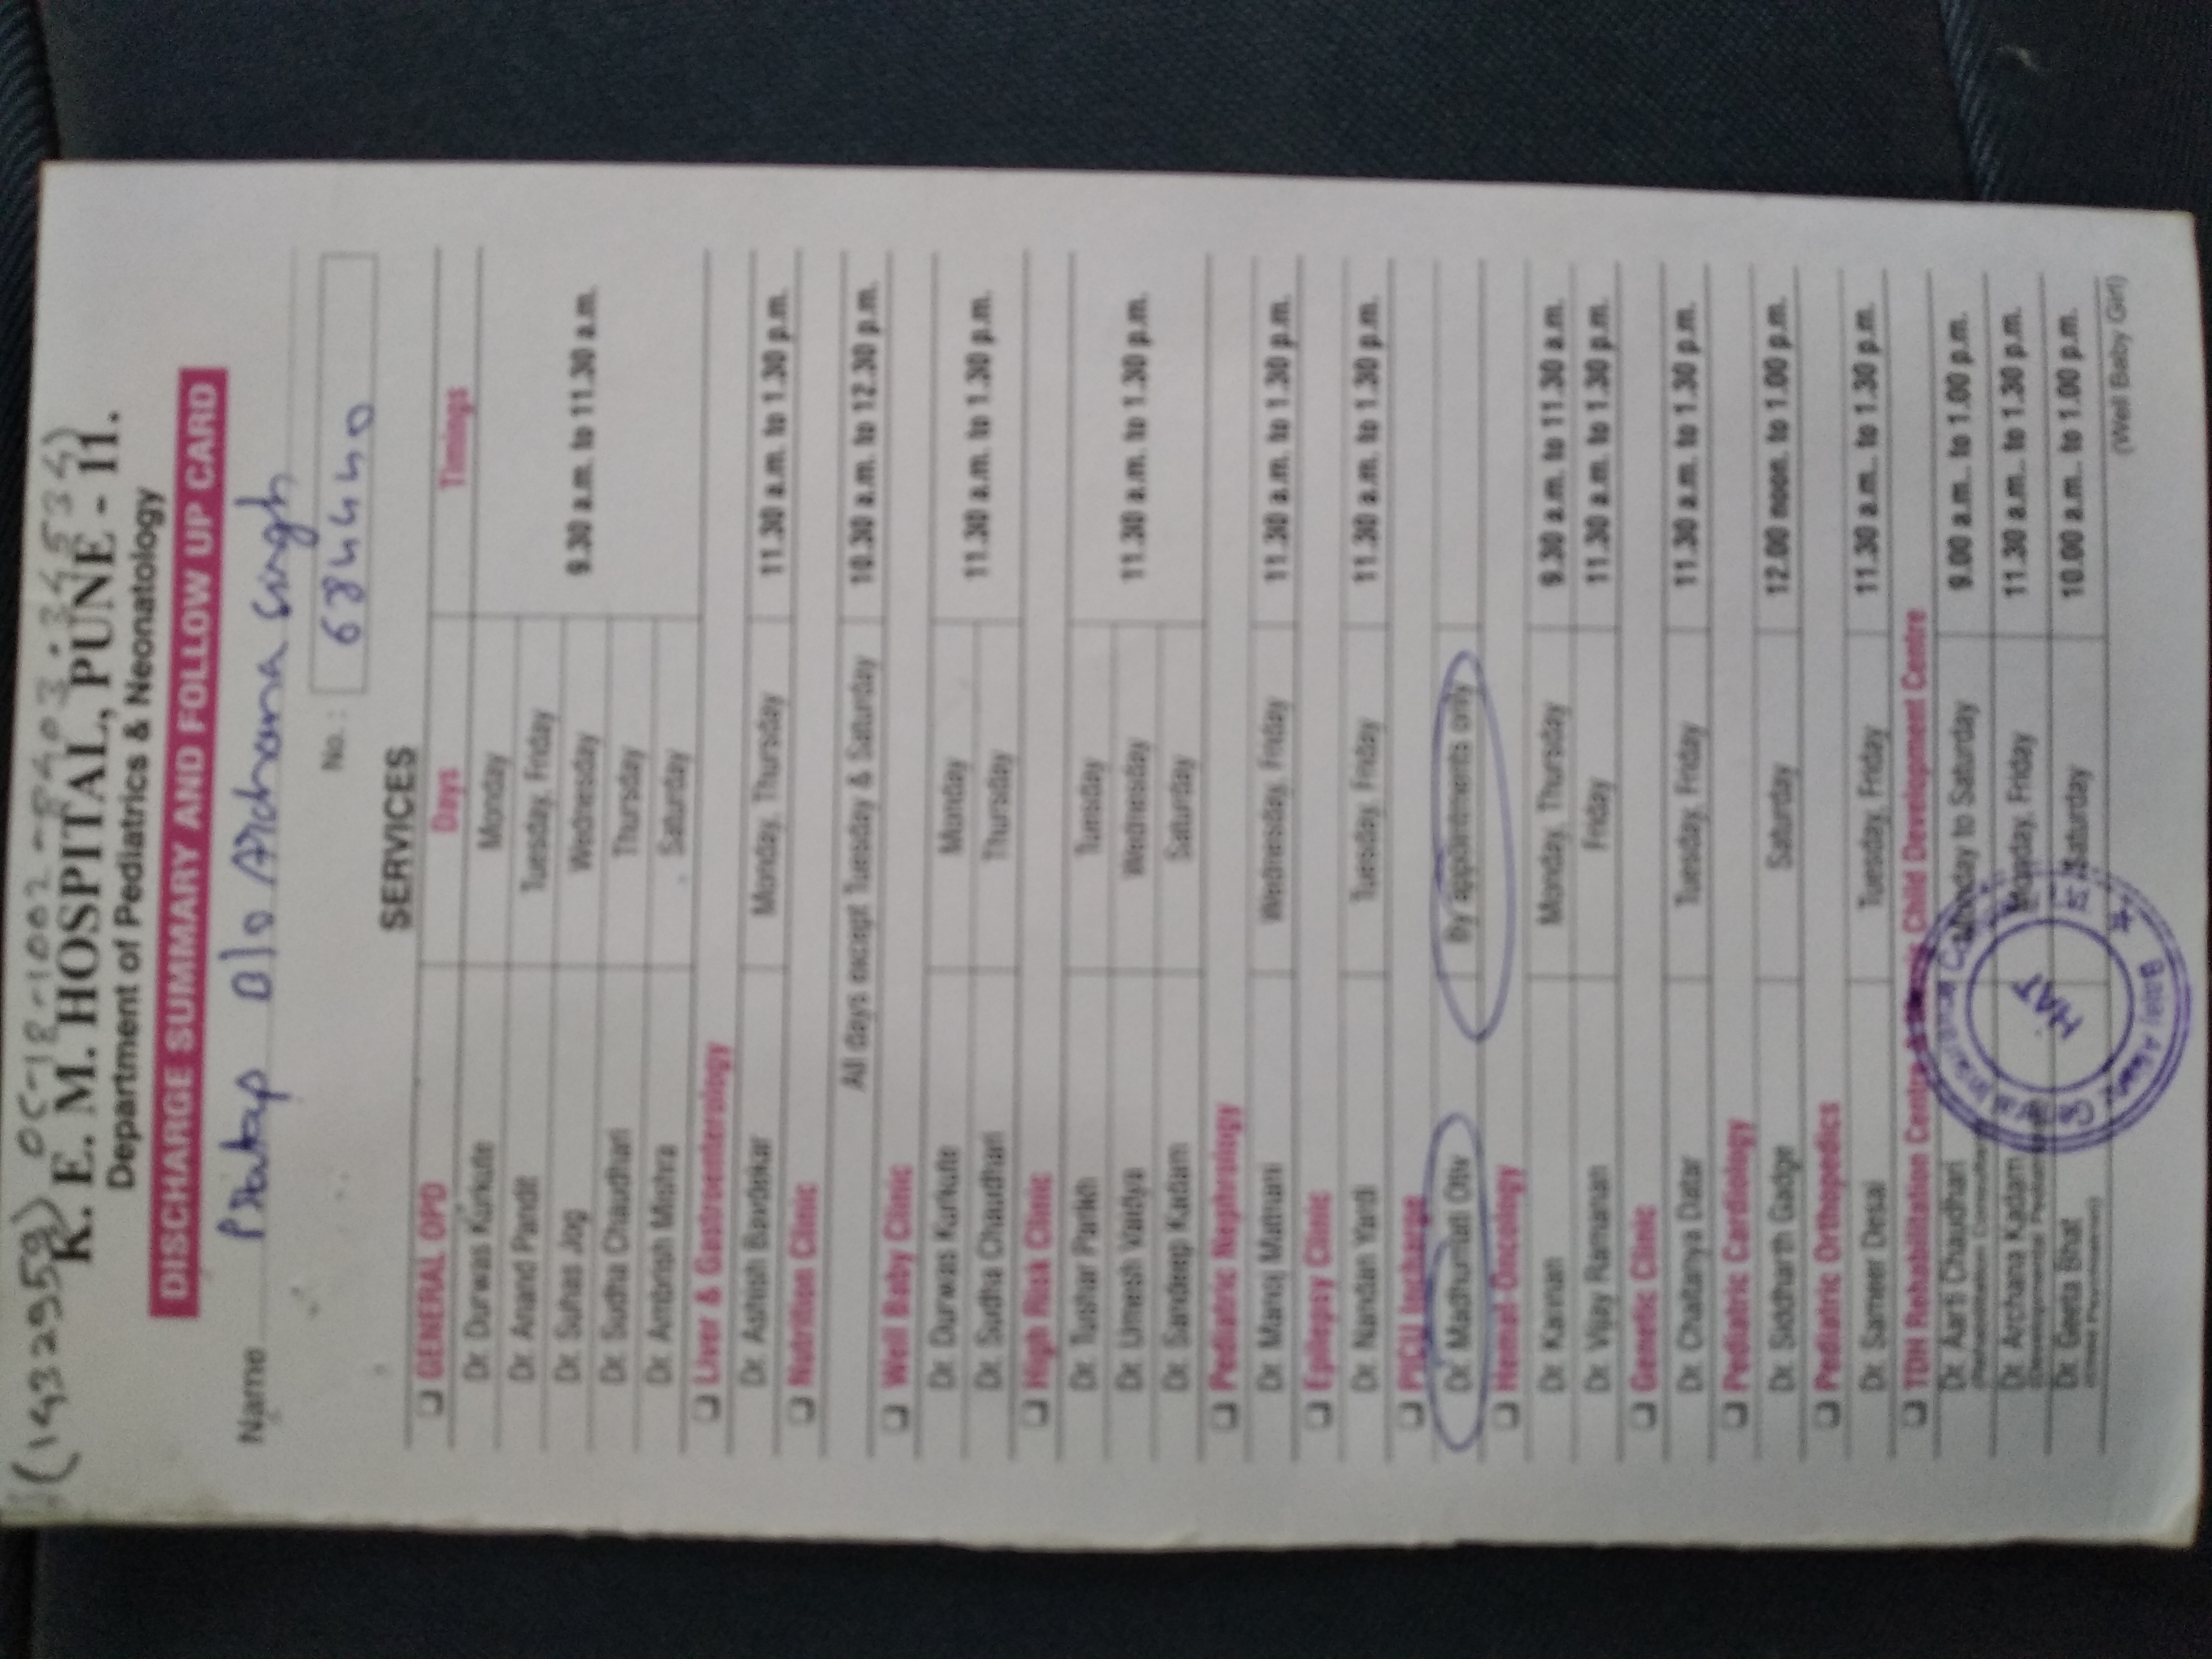 (1932959) OC-18-1002-8403-345534)
K. E. M. HOSPITAL, PUNE - 11.
Department of Pediatrics & Neonatology
DISCHARGE SUMMARY AND FOLLOW UP CARD
Name Pratap B/o Archana Singh
No.: 6844440
SERVICES
❏ GENERAL OPD Days Timings
Dr. Durwas Kurkute Monday
Dr. Anand Pandit Tuesday, Friday
Dr. Suhas Jog Wednesday 9.30 a.m. to 11.30 a.m.
Dr. Sudha Chaudhari Thursday
Dr. Ambrish Mishra Saturday
❏ Liver & Gastroenterology
Dr. Ashish Bavdekar Monday, Thursday 11.30 a.m. to 1.30 p.m.
❏ Nutrition Clinic
All days except Tuesday & Saturday 10.30 a.m. to 12.30 p.m.
❏ Well Baby Clinic
Dr. Durwas Kurkute Monday
Dr. Sudha Chaudhari Thursday 11.30 a.m. to 1.30 p.m.
❏ High Risk Clinic
Dr. Tushar Parikh Tuesday
Dr. Umesh Vaidya Wednesday 11.30 a.m. to 1.30 p.m.
Dr. Sandeep Kadam Saturday
❏ Pediatric Nephrology
Dr. Manoj Matnani Wednesday, Friday 11.30 a.m. to 1.30 p.m.
❏ Epilepsy Clinic
Dr. Nandan Yardi Tuesday, Friday 11.30 a.m. to 1.30 p.m.
❏ PICU Incharge
Dr. Madhumati Otiv By appointments only
❏ Hemat-Oncology
Dr. Kannan Monday, Thursday 9.30 a.m. to 11.30 a.m.
Dr. Vijay Ramanan Friday 11.30 a.m. to 1.30 p.m.
❏ Genetic Clinic
Dr. Chaitanya Datar Tuesday, Friday 11.30 a.m. to 1.30 p.m.
❏ Pediatric Cardiology
Dr. Siddharth Gadge Saturday 12.00 noon. to 1.00 p.m.
❏ Pediatric Orthopedics
Dr. Sameer Desai Tuesday, Friday 11.30 a.m. to 1.30 p.m.
❏ TDH Rehabilitation Centre Child Development Centre
Dr. Aarti Chaudhari Monday to Saturday 9.00 a.m.. to 1.00 p.m.
Dr. Archana Kadam Monday, Friday 11.30 a.m.. to 1.30 p.m.
Dr. Geeta Bhat Saturday 10.00 a.m.. to 1.00 p.m.
(Well Baby Girl)
HAT